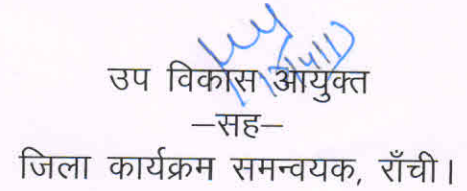 उप विकास आयुक्त
–सह–
जिला कार्यक्रम समन्वयक, राँची।